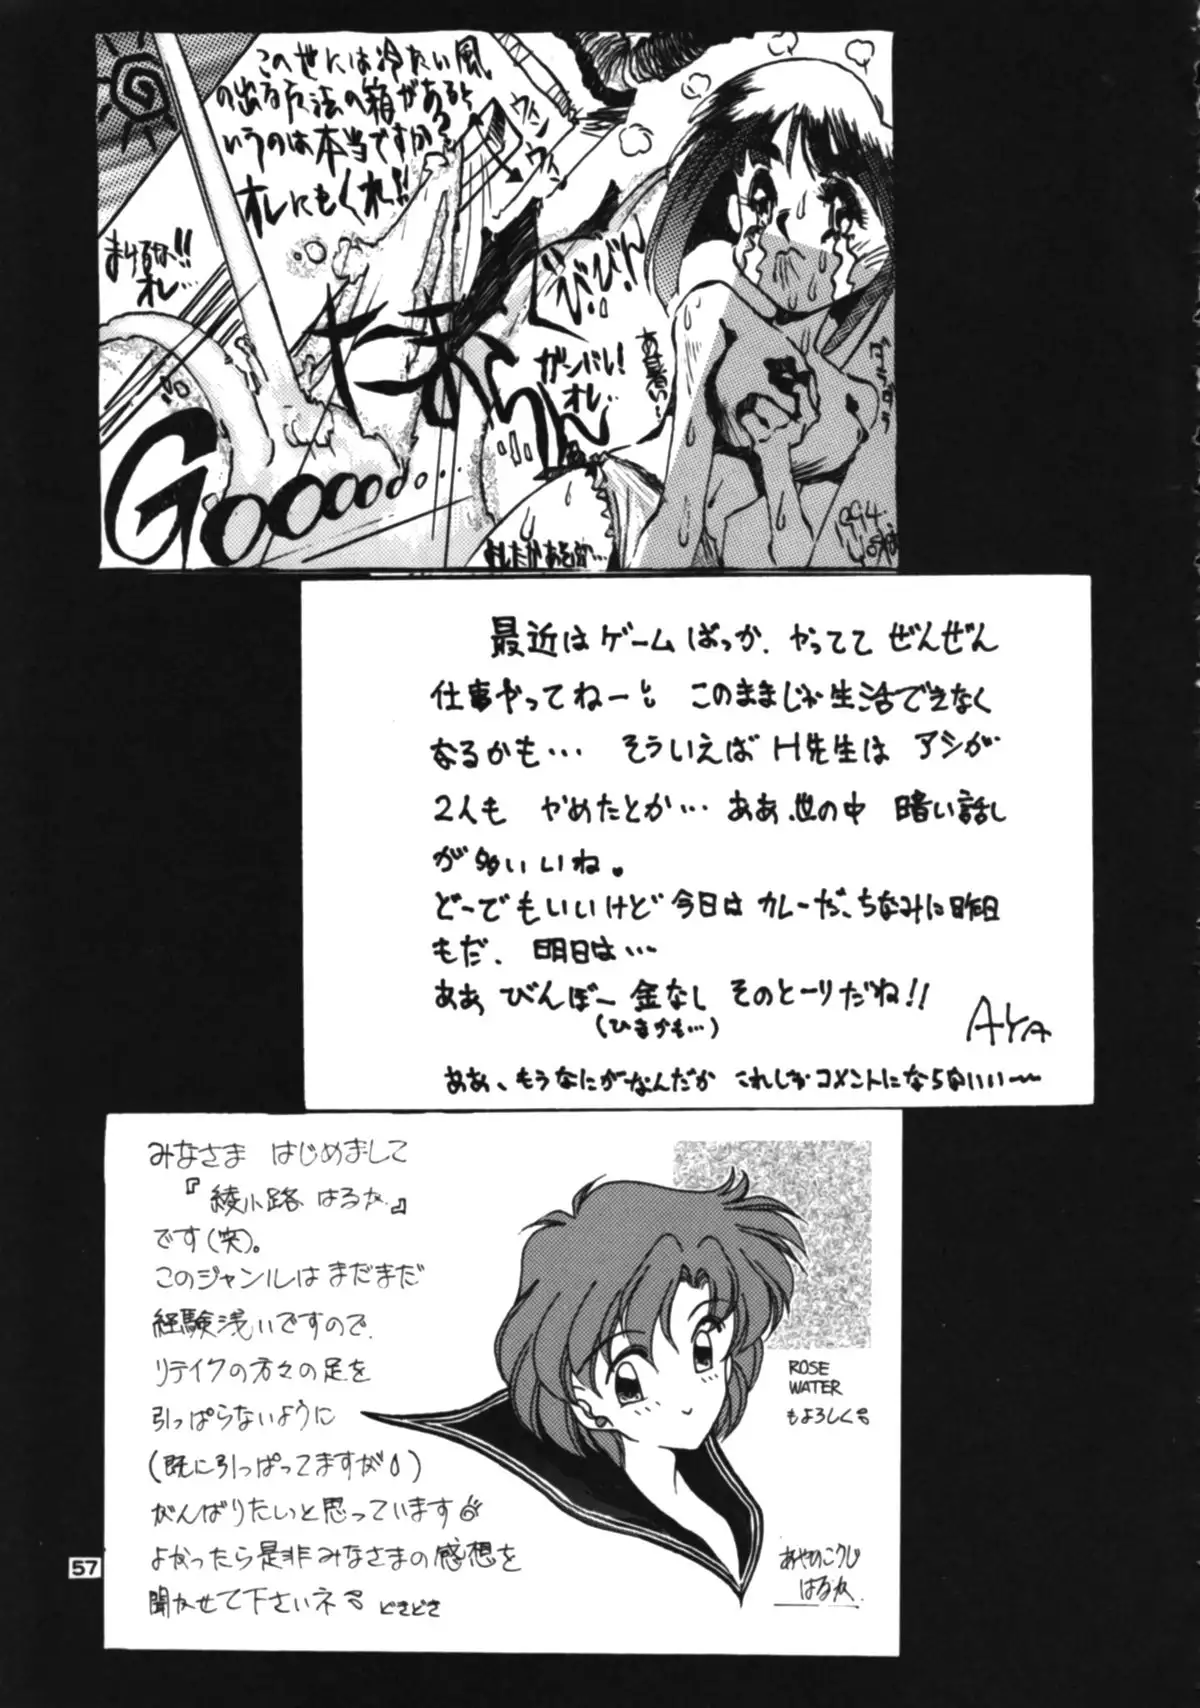 この世には冷たい風
の出る方法の箱があると
いうのは本当ですか?
オレにもくれ!!
ウィン
ウィン
まけるな!!
オレ…
びんびん
ガンバレ!
オレ…
あ〜暑い…
たまらん
Gooooooo...
ダラダラ
1994
最近はゲームばっか、やってて ぜんぜん
仕事やってねーし このままじゃ生活できなく
なるかも… そういえば H先生は アシが
2人も やめたとか… ああ、世の中 暗い話し
が多いいね。
どーでもいいけど 今日は カレーだ、ちなみに昨日
もだ、 明日は…
ああ、びんぼー 金なし そのとーりだね!!
(ひまかも…)
AYA
ああ、もうなにがなんだか これじゃコメントにならないい〜
みなさま はじめまして
『綾小路 はるか』
です(笑)。
このジャンルはまだまだ
経験浅いですので、
リテイクの方々の足を
引っぱらないように
(既に引っぱってますが)
がんばりたいっと思っています
よかったら是非みなさまの感想を
聞かせて下さいネ どきどき
ROSE
WATER
もよろしく
あやのこうじ
はるか
57